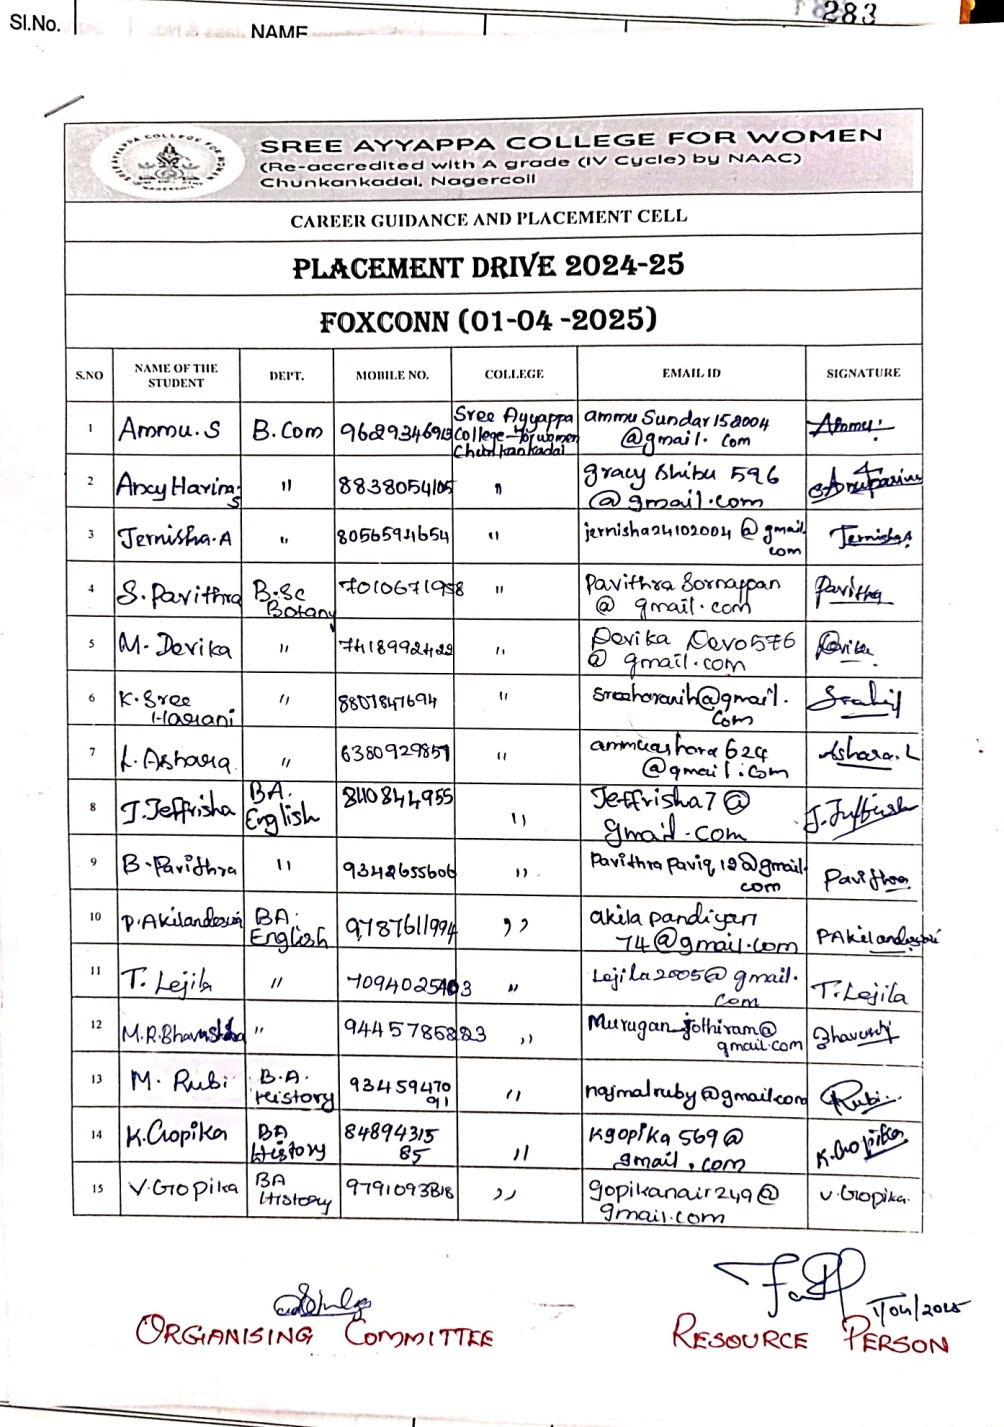 Sl.No.
NAME
283
SREE AYYAPPA COLLEGE FOR WOMEN
(Re-accredited with A grade (IV Cycle) by NAAC)
Chunkankadai, Nagercoil
CAREER GUIDANCE AND PLACEMENT CELL
PLACEMENT DRIVE 2024-25
FOXCONN (01-04 -2025)
S.NO NAME OF THE STUDENT DEPT. MOBILE NO. COLLEGE EMAIL ID SIGNATURE
1 Ammu.S B.Com 9629346913 Sree Ayyappa College for women Chunkankadai ammu Sundar152004 @gmail.com
2 Ancy Harina S " 8838054105 " gracy Shibu 596 @gmail.com
3 Jernisha.A " 8056594654 " jernisha24102004 @gmail.com Jernisha
4 S. Pavithra B.Sc Botany 7010671958 " Pavithra Sornappan @ gmail.com Pavithra
5 M. Devika " 7418992429 " Devika Devo576 @ gmail.com Devika
6 K. Sree Harani " 8807847694 " sreeharanih@gmail.com
7 L. Ashara " 6380929857 " ammuashara 624 @gmail.com Ashara. L
8 J. Jeffrisha BA. English 8110844955 " Jeffrisha7@ gmail.com
9 B. Pavithra " 9342655606 " Pavithra paviq 12@gmail.com Pavithra
10 P. Akilandeswari BA. English 9787611994 " akila pandiyan 74@gmail.com P Akilandeswari
11 T. Lejila " 7094025403 " Lejila2005@ gmail.com T. Lejila
12 M.R.Bhavashiba " 9445785883 " Murugan jothiram@ gmail.com
13 M. Rubi B.A. History 9345947091 " najmalruby@gmail.com Rubi
14 K. Gopika BA History 8489431585 " kgopika 569@ gmail.com K. Gopika
15 V. Gopika BA History 9791093818 " gopikanair249@ gmail.com V. Gopika
1/04/2025
ORGANISING COMMITTEE
RESOURCE PERSON